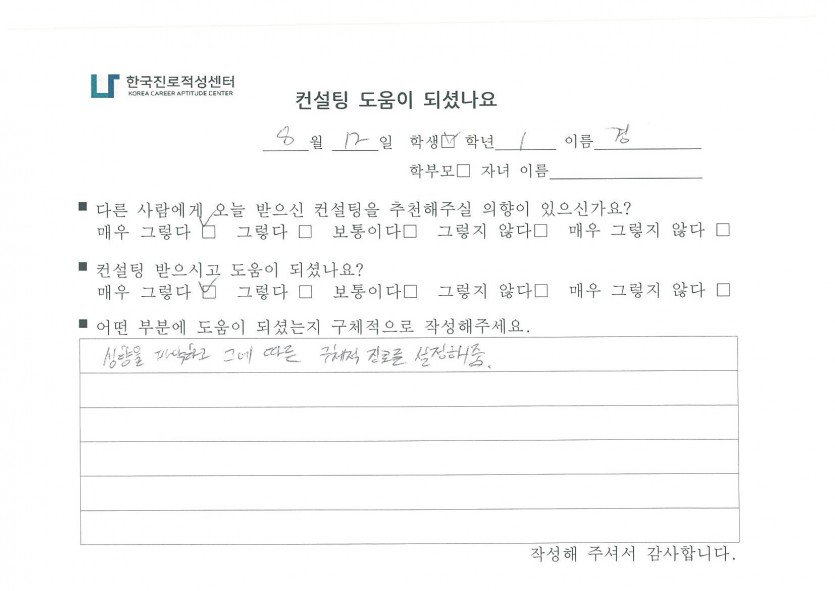 한국진로적성센터
KOREA CAREER APTITUDE CENTER
컨설팅 도움이 되셨나요
8 월 12 일 학생☑ 학년 1 이름 경
학부모□ 자녀 이름
■ 다른 사람에게 오늘 받으신 컨설팅을 추천해주실 의향이 있으신가요?
매우 그렇다 ☑ 그렇다 □ 보통이다□ 그렇지 않다□ 매우 그렇지 않다 □
■ 컨설팅 받으시고 도움이 되셨나요?
매우 그렇다 ☑ 그렇다 □ 보통이다□ 그렇지 않다□ 매우 그렇지 않다 □
■ 어떤 부분에 도움이 되셨는지 구체적으로 작성해주세요.
성향을 파악하고 그에 따른 구체적 진로를 설정해줌.
작성해 주셔서 감사합니다.